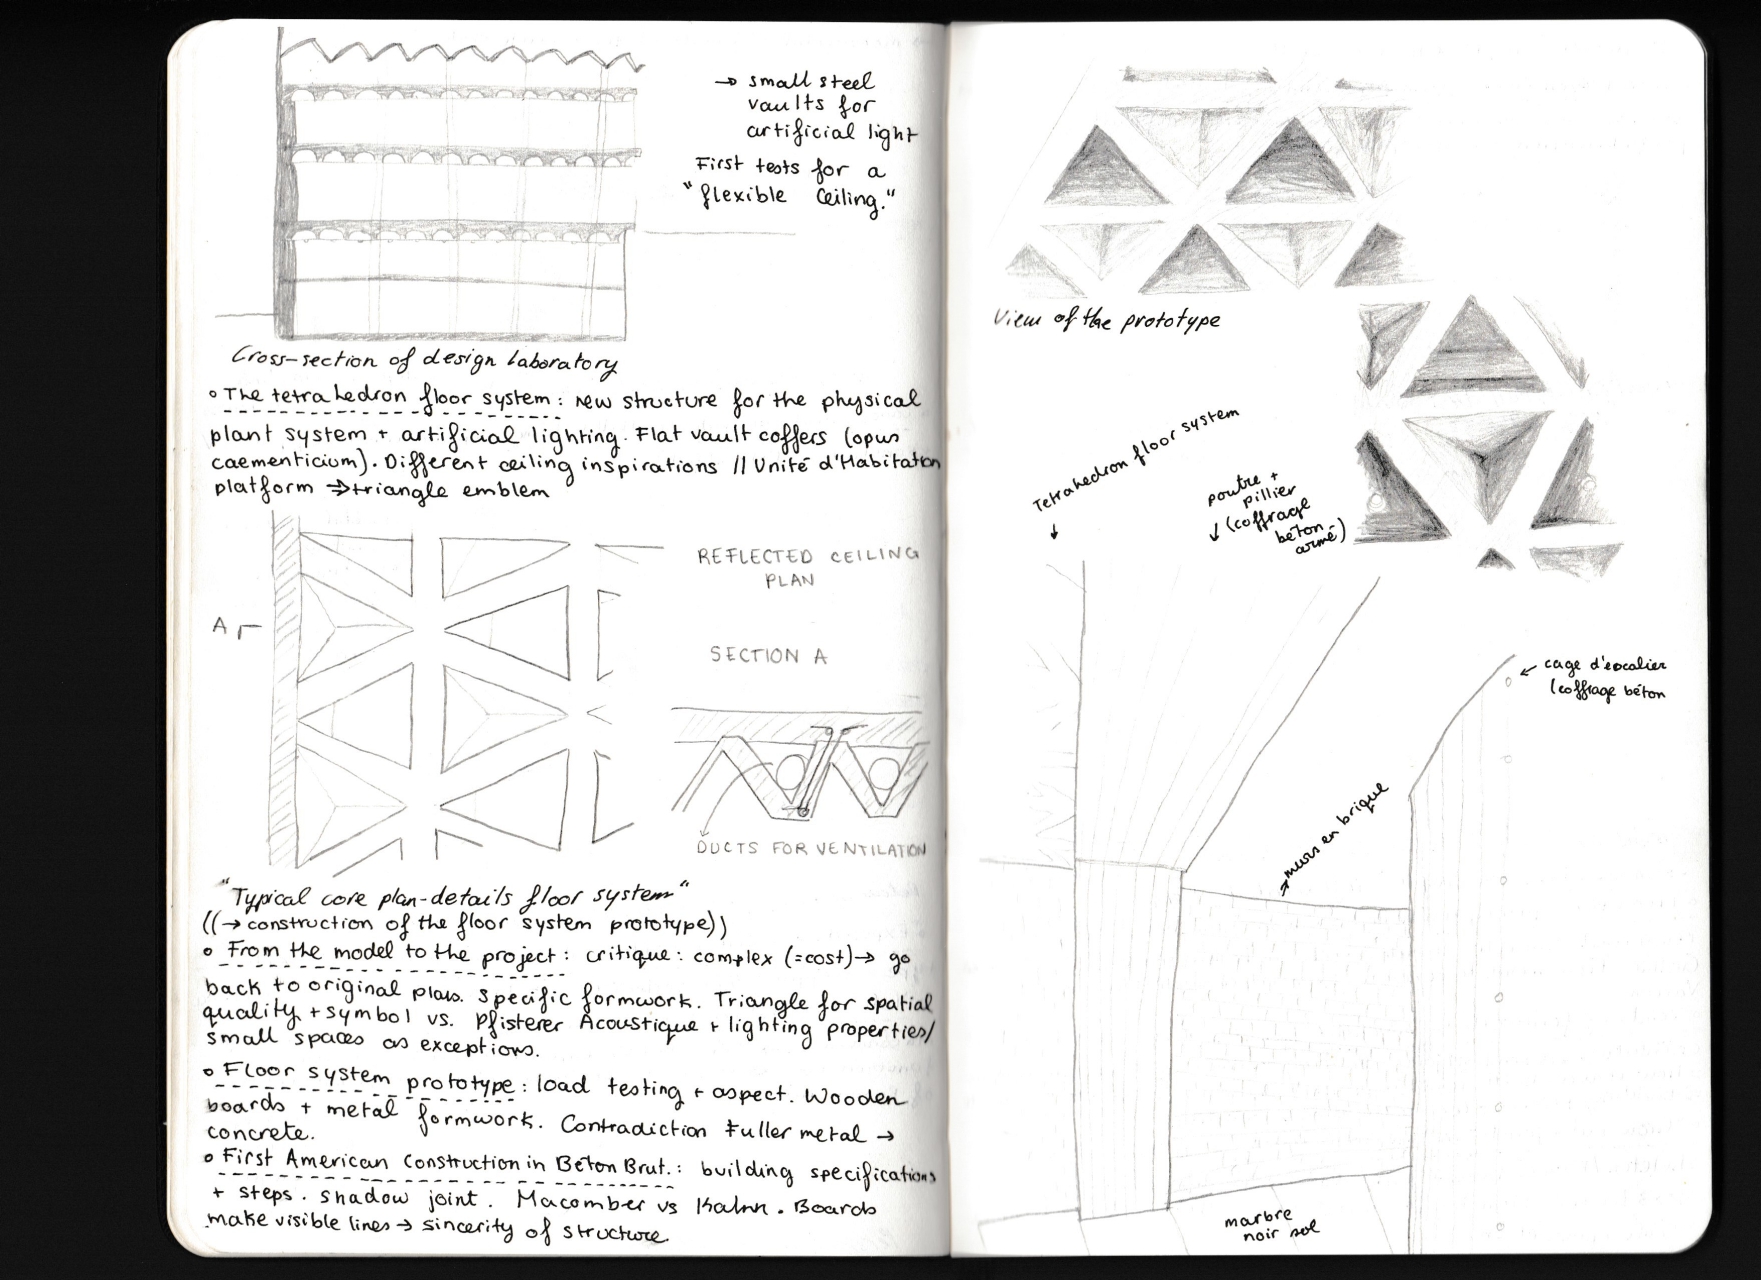 → small steel
vaults for
artificial light
First tests for a
"flexible ceiling."
Cross-section of design laboratory
° The tetrahedron floor system : new structure for the physical
plant system + artificial lighting. Flat vault coffers (opus
caementicium). Different ceiling inspirations // Unité d'Habitation
platform ⇒ triangle emblem
REFLECTED CEILING
PLAN
A
SECTION A
DUCTS FOR VENTILATION
"Typical core plan-details floor system"
((→ construction of the floor system prototype))
° From the model to the project : critique : complex (=cost) → go
back to original plan. Specific formwork. Triangle for spatial
quality + symbol vs. Pfisterer Acoustique + lighting properties/
small spaces as exceptions.
° Floor system prototype : load testing + aspect. Wooden
boards + metal formwork. Contradiction Fuller metal →
concrete.
° First American Construction in Béton Brut. : building specifications
+ steps. shadow joint. Macomber vs Kahn. Boards
make visible lines → sincerity of structure.
View of the prototype
Tetrahedron floor system
poutre +
pillier
(coffrage
béton
armé)
cage d'escalier
(coffrage béton
murs en brique
marbre
noir sol